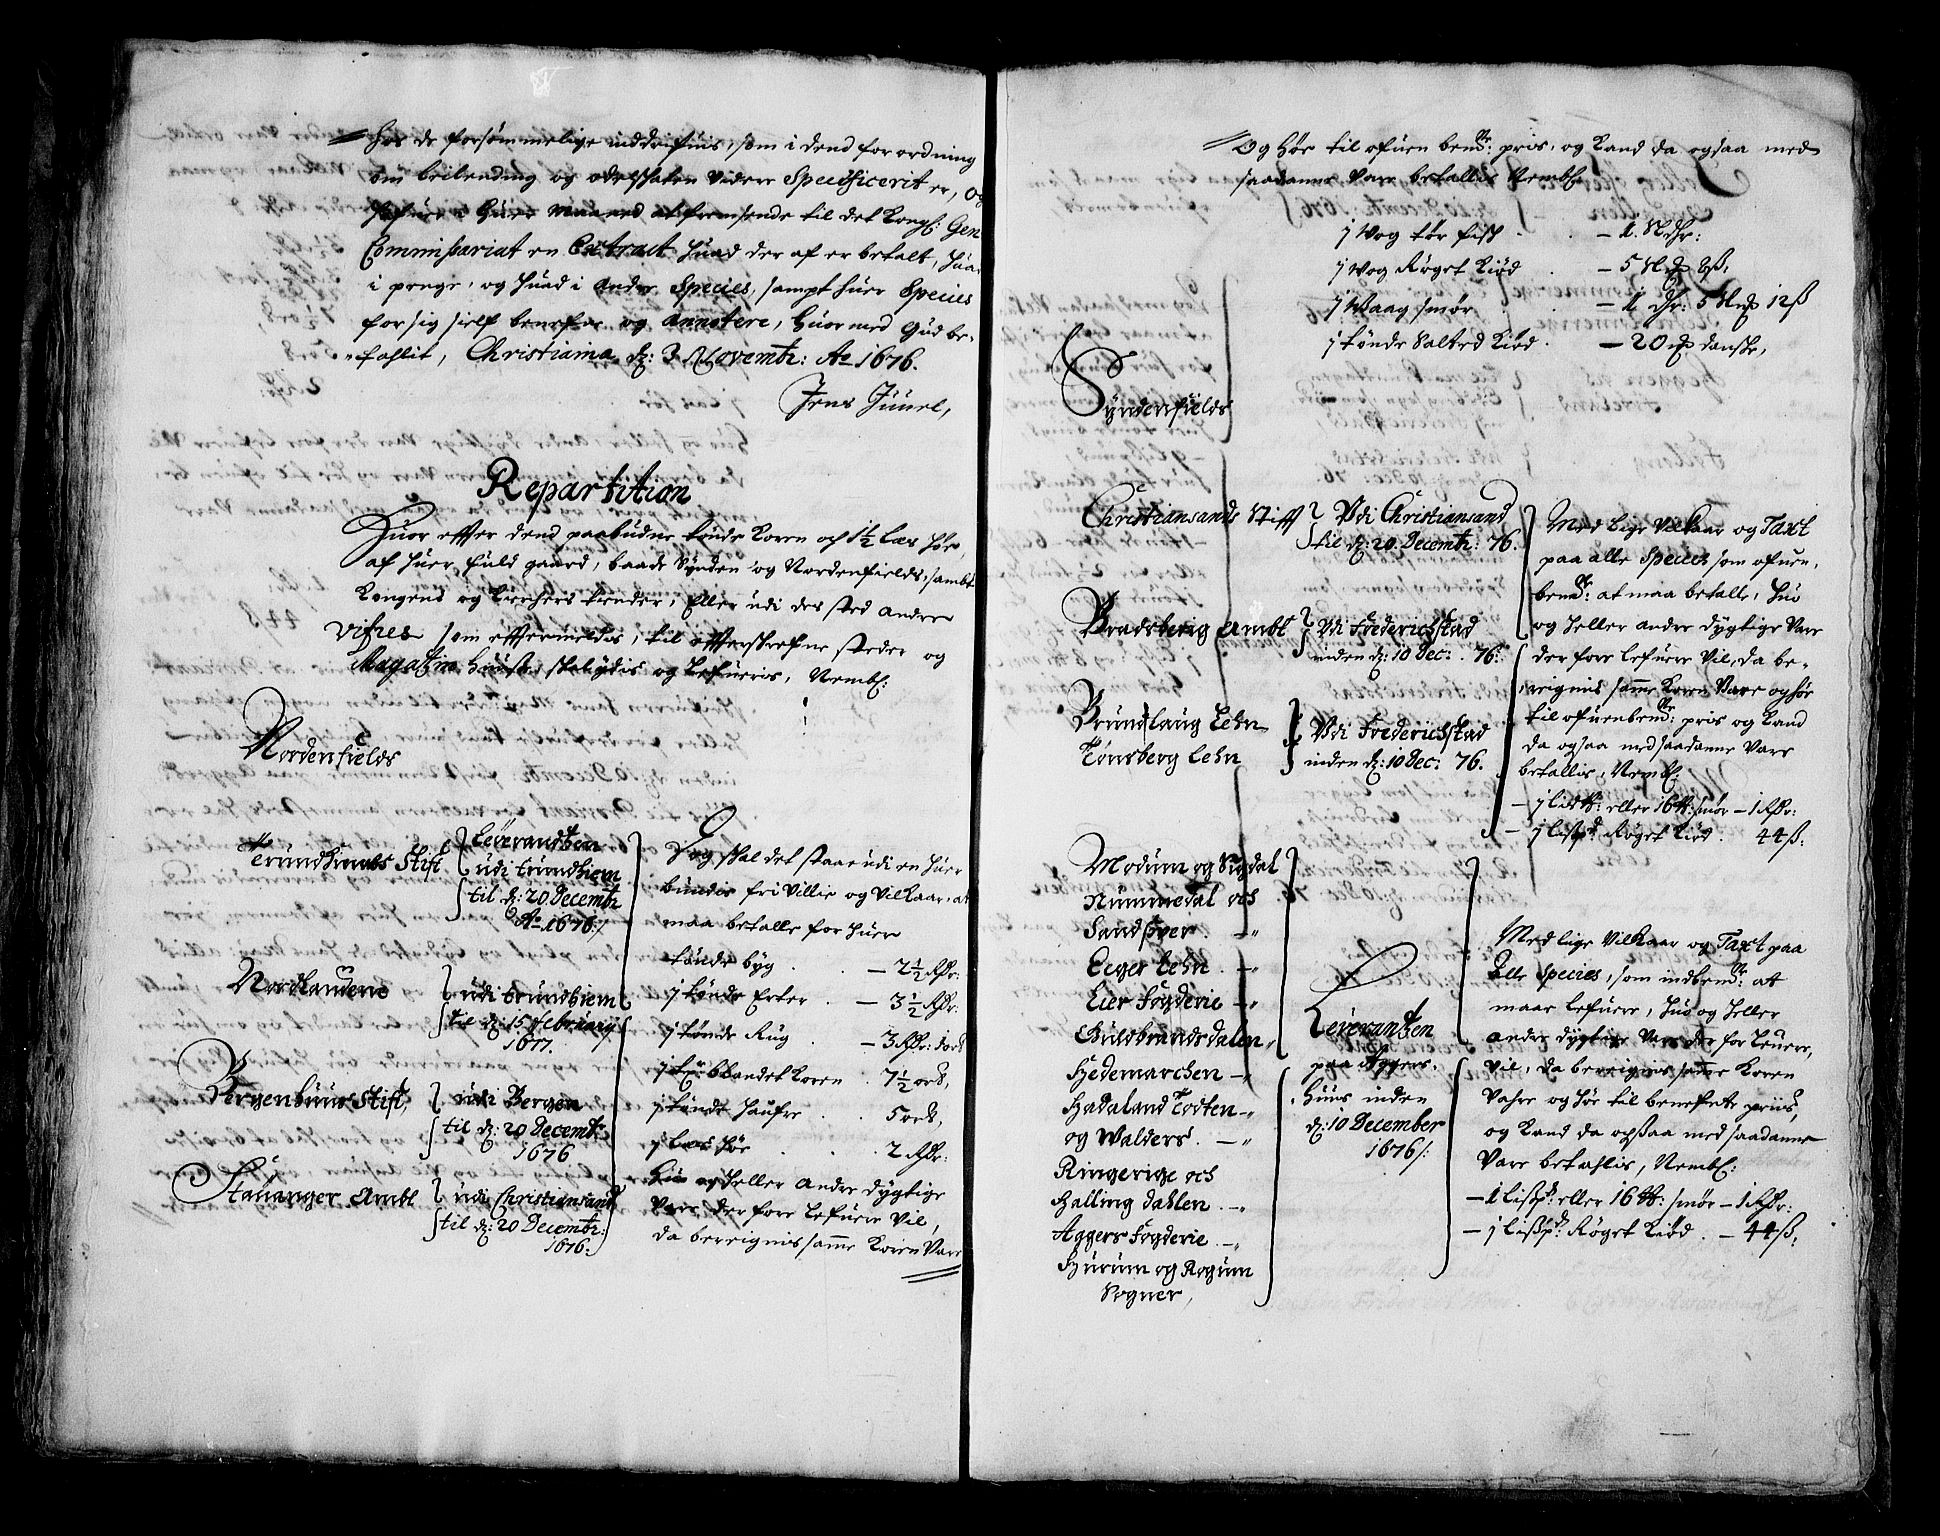 hos de forsømmelige inddrifuis, som i dend forordning
om beilending og odelskaten videre Specificerit er, og
hver Maaned at fremsende til det Kongl: Gen
Commissariat en Extract huad der af er betalt, huad
i penge, og huad i andre Species, sampt huer Species
for sig sielf benefnt og Annotere, huormed Gud be-
fahlit, Christiania dn: 3 Novembr: Ao 1676.
Jens Juuel,
Repartition
Huor effter dend paabudne tønde Koren och 1½ Læs høe
af huer fuld gaard, baade Synden og Nordenfields, sambt
Kongens og Kierchers tiender, eller udi des sted andre
vifres som effterm​eldis, til effterskrefne steder og
Magatzin huuse, skal ydis og Lefueris, Nembl:
Nordenfields
Trundhiembs Stift
Leverandtzen
udi trundhiem
til dn: 20 Decembr
Ao 1676:/
Nordlandene
udi trundhiem
til dn: 15 February
1677.
Bergenhuus Stift,
udi Bergen
til dn: 20 Decembr
1676
Stauanger Ambt
udi Christiansand
til dn: 20 Decembr:
1676.
Dog skal det staae udi en huer
bundis fri Villie og Vilkaar, at
maa betalle for huer
tønde byg . . — 2½ Rdr:
j tønde Erter . — 3½ Rdr.
j tønde Rug . — 3 Rdr: j ort
j tø: blandet Koren . 7½ ort,
j tønde haufre . . 5 ort,
j Læs høe . . . 2 Rdr:
Huo og heller andre dygtige
Vare der fore Lefuere vil,
da beregnis samme Koren Vare
Og høe til ofuen bemte: pris, og kand da ogsaa med
saadanne Vare betallis Nembl.
j Vog tør fisk . . — 1. Rdr:
j Vog Røget Kiød . — 5 Rmk 8ß,
j Waag smør . . — 1 dr: 5 Rmk 12ß
j tønde Salted Kiød . — 20 mk danske,
Syndenfields
Christiansands Stifft
Udi Christiansand
til dn: 20. Decembr: 76.
Bradsberig Ambt
Udi Frederichstad
inden dn: 10 Dec: . 76:
Brunslaug Lehn
Tønsberg Lehn
Udi Frederichstad
inden dn: 10 Dec: 76.
Med Lige Vilkaar og Taxt
paa alle Species som ofuen,
bemte: at maa betalle, huo
og heller andre dygtige Vare
der fore Lefuere vil, da be-
regnis samme Koren Vare og høe
til ofuenbemte: pris og kand
da ogsaa med saadanne Vare
betallis, Nembl:
— j Lid℔: eller 16 ℔: smør — 1 Rdr:
— j Lißpd: Røget Kiød . 44ß:
Modum og Sigdal
Nummedal och
Sandsver . —"
Eeger Lehn . —"
Eier Fogderie —"
Guldbrandsdalen "
Hedemarchen —"
Hadaland Todten —"
og Walders . —"
Ringerige och
Halling dahlen . —"
Aggers Fogderie . —"
Hurum og Rogum
Sogner,
Leverantzen
paa Aggers-
Huus inden
dn: 10 December
1676/:
Med lige Vilkaar og Taxt paa
Alle Species, som indbemte: at
maae Lefuere, huo og heller
andre dygtige Vare der for Leuere,
vil, da beregnis samme Koren
Vahre og høe til benefnte priis,
og kand da ochsaa med saadanne
Vare betahlis, Nembl:
— 1 Lißpd: eller 16 ℔: smør — 1 Rdr:
— j Lißpd: Røget Kiød . — 44ß: